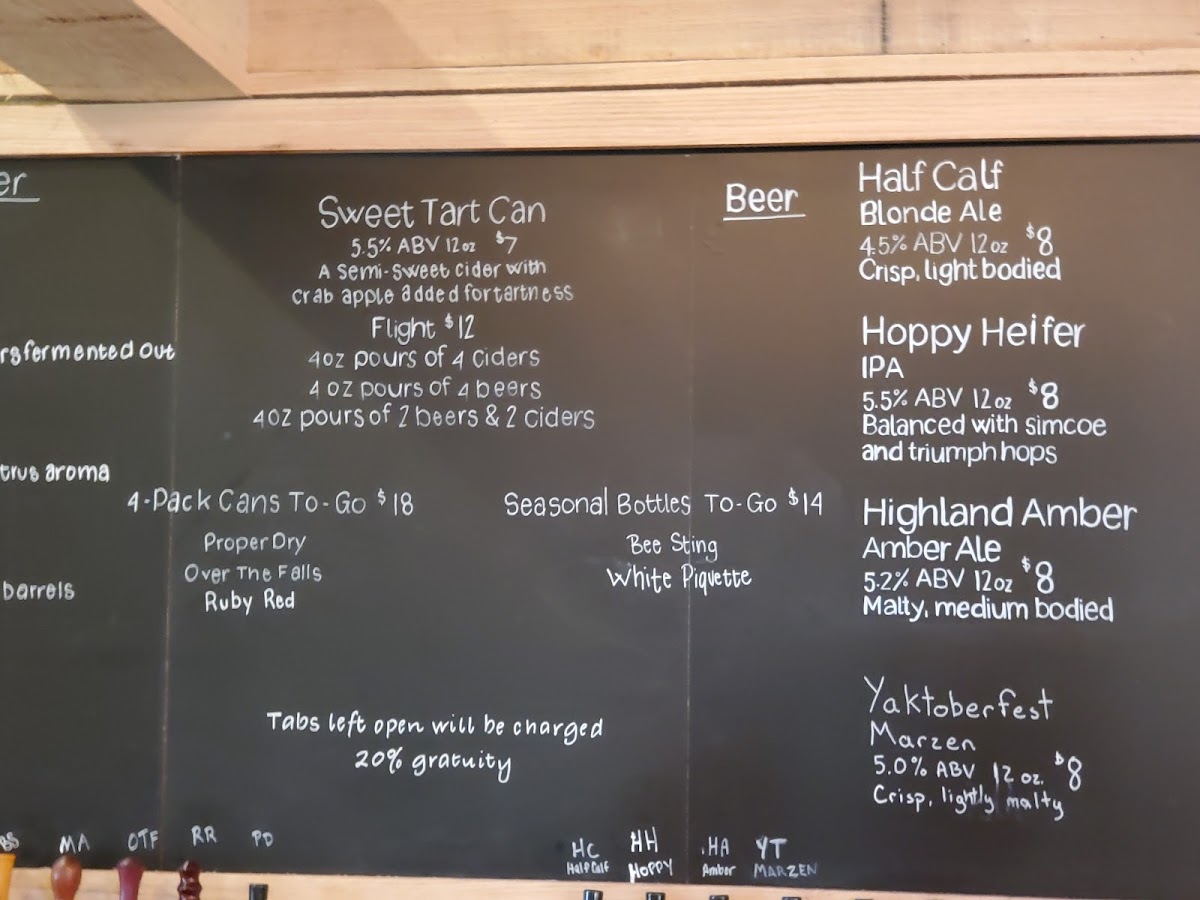 Sweet Tart Can
5.5% ABV 12oz $7
A semi-sweet cider with
crab apple added for tartness
Flight $12
4oz pours of 4 ciders
4 oz pours of 4 beers
4oz pours of 2 beers & 2 ciders
fermented out
aroma
barrels
4-Pack Cans To-Go $18
Proper Dry
Over The Falls
Ruby Red
Seasonal Bottles To-Go $14
Bee Sting
White Piquette
Tabs left open will be charged
20% gratuity
Beer
Half Calf
Blonde Ale
4.5% ABV 12oz $8
Crisp, light bodied
Hoppy Heifer
IPA
5.5% ABV 12oz $8
Balanced with simcoe
and triumph hops
Highland Amber
Amber Ale
5.2% ABV 12oz $8
Malty, medium bodied
Yaktoberfest
Marzen
5.0% ABV 12 oz. $8
Crisp, lightly malty
BS MA OTF RR PD
HC HH HA YT
Half Calf HOPPY Amber MARZEN